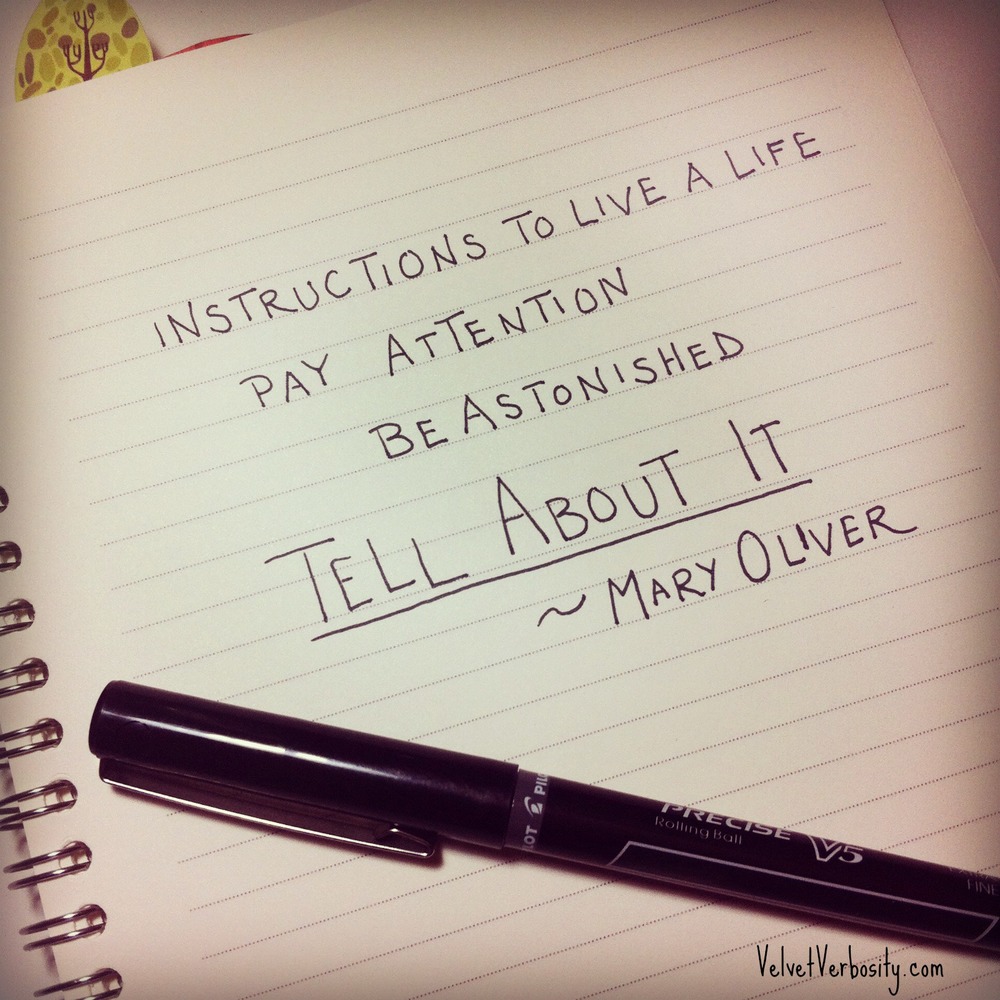 INSTRUCTIONS TO LIVE A LIFE
PAY ATTENTION
BE ASTONISHED
TELL ABOUT IT
~ MARY OLIVER
PILOT
PRECISE V5
Rolling Ball
VelvetVerbosity.com